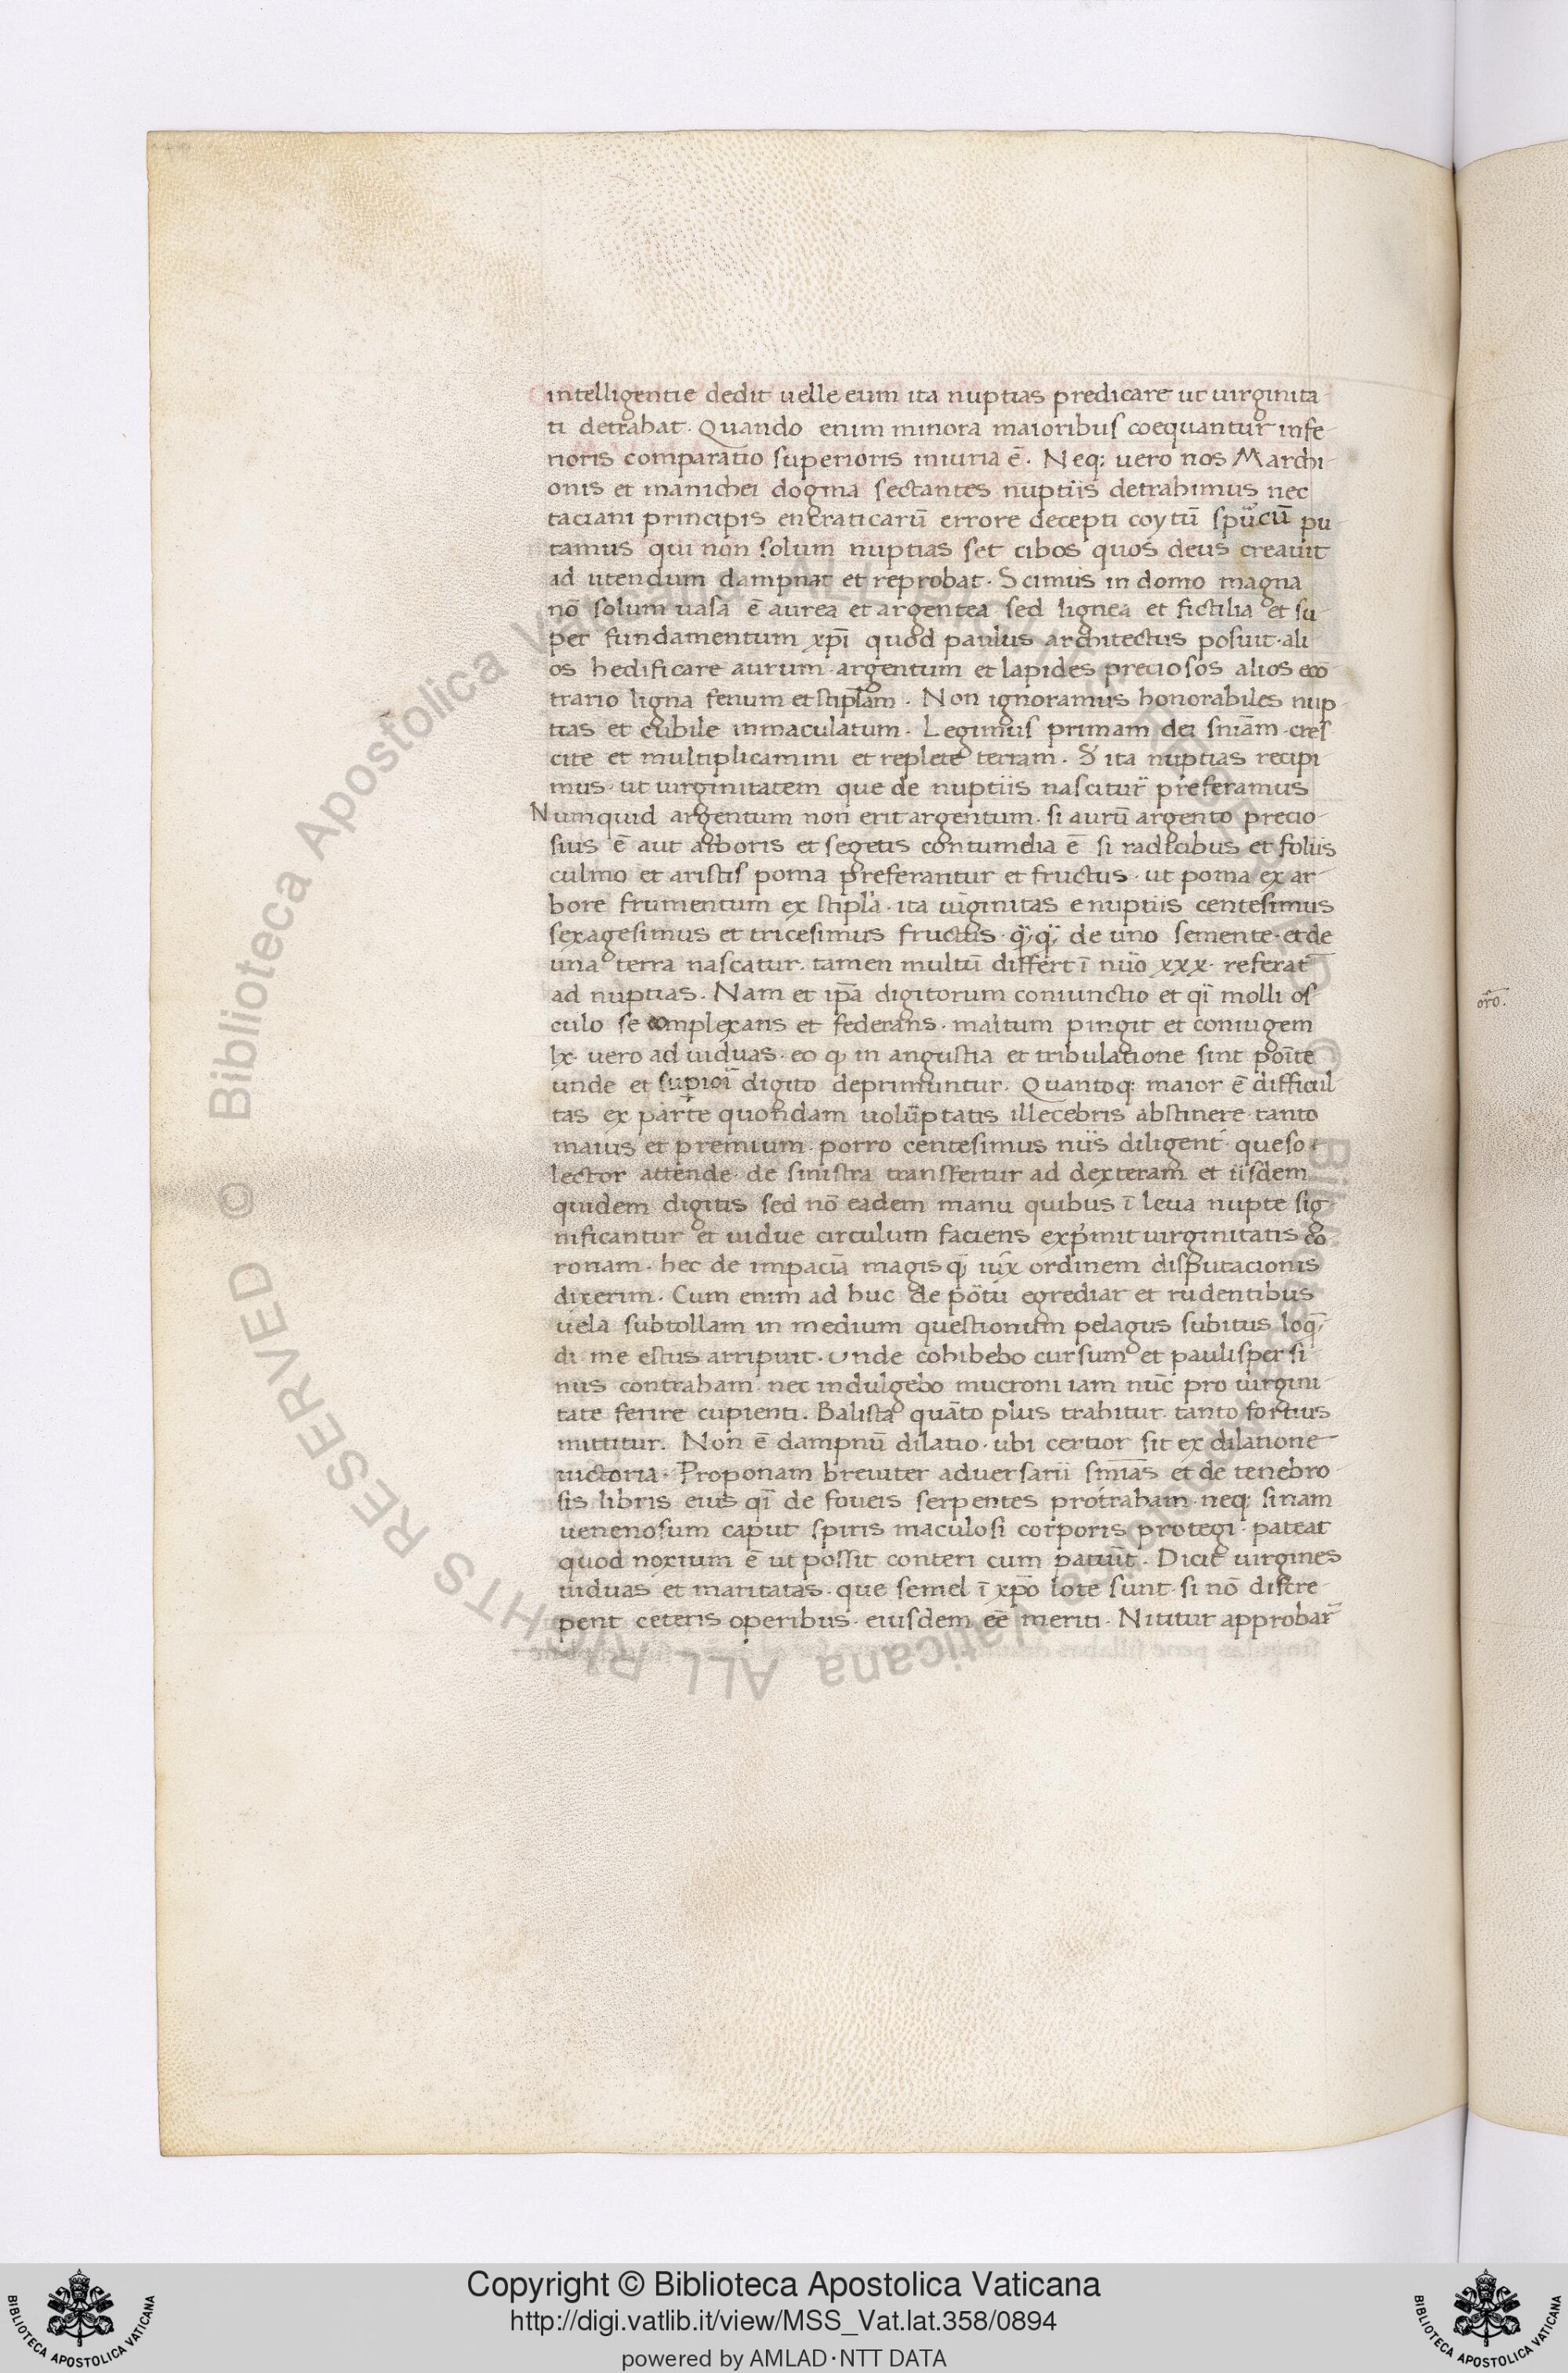 intelligentie dedit uelle eum ita nuptias predicare ut uirginita-
ti detrahat. Quando enim minora maioribus coequantur infe-
rioris comparatio superioris iniuria ē. Neq; uero nos Marchi-
onis et manichei dogma sectantes nuptiis detrahimus nec
taciani principis encraticarū errore decepti coytū spurcū pu-
tamus qui non solum nuptias set cibos quos deus creauit
ad utendum dampnat et reprobat. Scimus in domo magna
nō solum uasa ē aurea et argentea sed lignea et fictilia et su-
per fundamentum xp̄i quod paulus architectus posuit. ali
os hedificare aurum argentum et lapides preciosos alios eco
trario ligna fenum et stiplam. Non ignoramus honorabiles nup-
tias et cubile inmaculatum. Legimus primam dei sniam. cres
cite et multiplicamini et replete terram. S ita nuptias recipi
mus. ut uirginitatem que de nuptiis nascitur preferamus
Numquid argentum non erit argentum. si aurū argento precio-
sius ē aut arboris et segetis contumelia ē si radicibus et foliis
culmo et aristis poma preferantur et fructus. ut poma ex ar-
bore frumentum ex stipla. ita uiginitas e nuptiis centesimus
sexagesimus et tricesimus fructus. q̄q̄ de uno semente. et de
una terra nascatur. tamen multū differt ī nūo xxx. referat
ad nuptias. Nam et ip̄a digitorum coniunctio et qi molli os
culo se complexans et federans. maritum pingit et coniugem
lx. uero ad uiduas. eo q in angustia et tribulatione sint poite
unde et supiori digito deprimuntur. Quantoq; maior ē difficul
tas experte quondam uoluptatis illecebris abstinere. tanto
maius et premium. porro centesimus niis diligent queso
lector attende. de sinistra transfertur ad dexteram et iisdem
quidem digitis sed nō eadem manu quibus ī leua nupte sig
nificantur et uidue circulum faciens exp̄mit uirginitatis co
ronam. hec de impaciā magis q̄ iux ordinem disputacionis
dixerim. Cum enim ad huc de potu egrediar et rudentibus
uela subtollam in medium questionum pelagus subitus loq̄
di me estus arripuit. unde cohibebo cursum et paulisper si-
nus contraham. nec indulgebo mucroni iam nūc pro uirgini-
tate ferire cupienti. Balista quāto plus trahitur. tanto fortius
mittitur. Non ē dampnū dilatio. ubi certior sit ex dilatione
uictoria. Proponam breuiter aduersarii sn̄ias et de tenebro-
sis libris eius qi de foueis serpentes protraham. neq; sinam
uenenosum caput spiris maculosi corporis protegi. pateat
quod noxium ē ut possit conteri cum patuit. Dicit uirgines
uiduas et maritatas. que semel ī xp̄o lote sunt. si nō discre-
pent ceteris operibus. eiusdem eē meriti. Nititur approbar
Copyright © Biblioteca Apostolica Vaticana
http://digi.vatlib.it/view/MSS_Vat.lat.358/0894
powered by AMLAD·NTT DATA
© Biblioteca Apostolica Vaticana ALL RIGHTS RESERVED
BIBLIOTECA APOSTOLICA VATICANA
BIBLIOTECA APOSTOLICA VATICANA